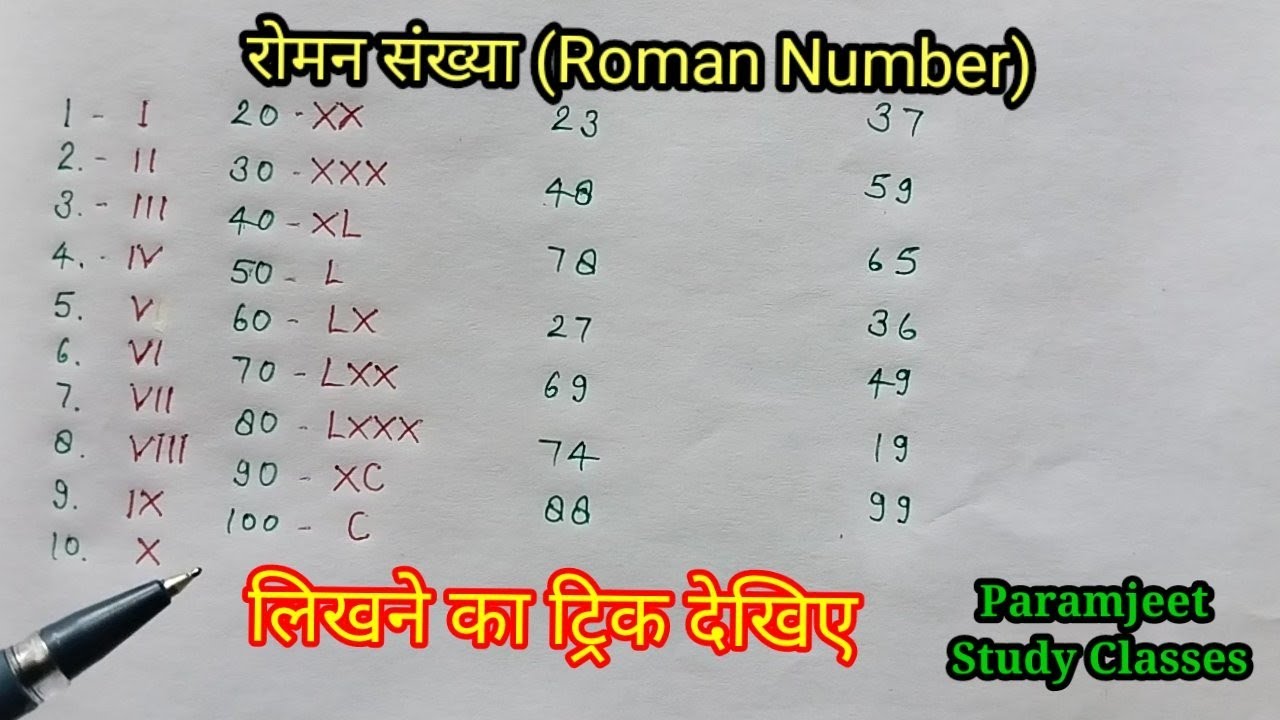 रोमन संख्या (Roman Number)
1 - I
2. - II
3. - III
4. - IV
5. V
6. VI
7. VII
8. VIII
9. IX
10. X
20 - XX
30 - XXX
40 - XL
50 - L
60 - LX
70 - LXX
80 - LXXX
90 - XC
100 - C
23
48
78
27
69
74
88
37
59
65
36
49
19
99
लिखने का ट्रिक देखिए
Paramjeet
Study Classes